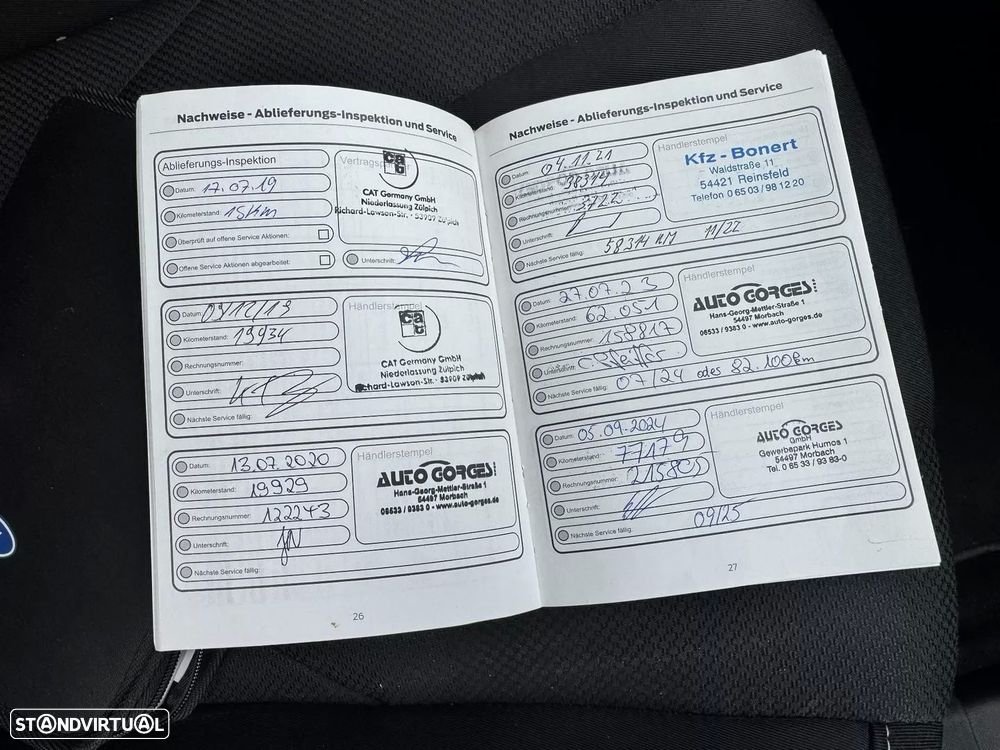 Nachweise - Ablieferungs-Inspektion und Service
Ablieferungs-Inspektion
Datum: 17.07.19
Kilometerstand: 15Km
Überprüft auf offene Service Aktionen:
Offene Service Aktionen abgearbeitet:
cat
CAT Germany GmbH
Niederlassung Zülpich
Richard-Lawson-Str. · 53909 Zülpich
Unterschrift:
Datum: 09/12/19
Kilometerstand: 19934
Rechnungsnummer:
Unterschrift:
Nächste Service fällig:
Händlerstempel
cat
CAT Germany GmbH
Niederlassung Zülpich
Richard-Lawson-Str. · 53909 Zülpich
Datum: 13.07.2020
Kilometerstand: 19929
Rechnungsnummer: 122243
Unterschrift:
Nächste Service fällig:
Händlerstempel
AUTO GORGES
Hans-Georg-Mettler-Straße 1
54497 Morbach
06533 / 9383 0 - www.auto-gorges.de
26
Nachweise - Ablieferungs-Inspektion und Service
Datum: 04.11.21
Kilometerstand: 38314
Rechnungsnummer: 3722
Unterschrift:
Nächste Service fällig: 58314 KM 11/22
Händlerstempel
Kfz - Bonert
Waldstraße 11
54421 Reinsfeld
Telefon 0 65 03 / 98 12 20
Datum: 27.07.23
Kilometerstand: 62 051
Rechnungsnummer: 158817
Unterschrift: C. Pfeiffer
Nächste Service fällig: 07/24 oder 82.100km
Händlerstempel
AUTO GORGES
Hans-Georg-Mettler-Straße 1
54497 Morbach
06533 / 9383 0 - www.auto-gorges.de
Datum: 05.09.2024
Kilometerstand: 77179
Rechnungsnummer: 215805
Unterschrift:
Nächste Service fällig: 09/25
Händlerstempel
AUTO GORGES
GmbH
Gewerbepark Humos 1
54497 Morbach
Tel. 0 65 33 / 93 83-0
27
STANDVIRTUAL